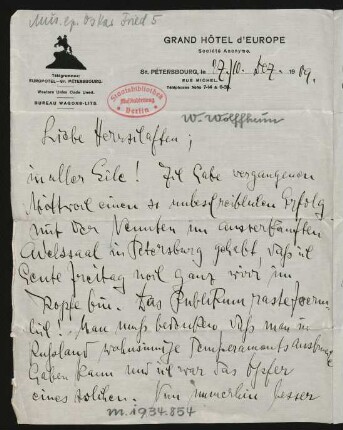 Mus. ep. Oskar Fried 5
GRAND HÔTEL d'EUROPE
Société Anonyme.
Télégrammes:
EUROPOTEL—ST. PÉTERSBOURG.
Western Union Code Used.
BUREAU WAGONS-LITS.
ST. PÉTERSBOURG, le 27./10. Dez. 1909.
RUE MICHEL.
Téléphones
Staatsbibliothek
Musikabteilung
Berlin
W. Wolffheim
Liebe Herrschaften;
in aller Eile! Ich habe vergangenen
Mittwoch einen so unbeschreibenden Erfolg
mit der Neunten im ausverkauften
Adelssaal in Petersburg gehabt, daß ich
heute Freitag noch ganz wirr im
Kopfe bin. Das Publikum raste förm-
lich! Man muß bedenken, daß man in
Rußland wahnsinnige Temperamentsausbrüche
haben kann und ich war das Opfer
eines solchen. Nun immerhin besser
m. 1934.854